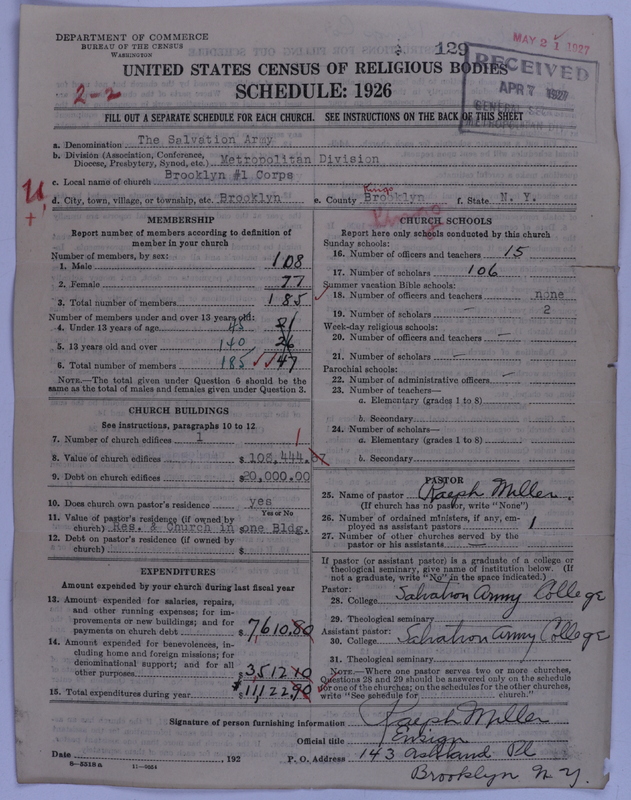 DEPARTMENT OF COMMERCE
BUREAU OF THE CENSUS
WASHINGTON
129
MAY 21 1927
RECEIVED
APR 7 1927
UNITED STATES CENSUS OF RELIGIOUS BODIES
SCHEDULE: 1926
2-2
FILL OUT A SEPARATE SCHEDULE FOR EACH CHURCH. SEE INSTRUCTIONS ON THE BACK OF THIS SHEET
a. Denomination The Salvation Army
b. Division (Association, Conference,
Diocese, Presbytery, Synod, etc.) Metropolitan Division
c. Local name of church Brooklyn #1 Corps
Kings
d. City, town, village, or township, etc. Brooklyn e. County Brooklyn f. State N. Y.
Kings
MEMBERSHIP
Report number of members according to definition of
member in your church
Number of members, by sex:
1. Male 108
2. Female 77
3. Total number of members 185
Number of members under and over 13 years old:
4. Under 13 years of age 45 21
5. 13 years old and over 140 26
6. Total number of members 185 47
NOTE.—The total given under Question 6 should be the
same as the total of males and females given under Question 3.
CHURCH BUILDINGS
See instructions, paragraphs 10 to 12
7. Number of church edifices 1 1
8. Value of church edifices $ 108,444.87
9. Debt on church edifices $20,000.00
10. Does church own pastor's residence yes
Yes or No
11. Value of pastor's residence (if owned by
church) Res. & Church in one Bldg.
12. Debt on pastor's residence (if owned by
church) $
EXPENDITURES
Amount expended by your church during last fiscal year
13. Amount expended for salaries, repairs,
and other running expenses; for im-
provements or new buildings; and for
payments on church debt $ 7610.80
14. Amount expended for benevolences, in-
cluding home and foreign missions; for
denominational support; and for all
other purposes 3,512 10
15. Total expenditures during year $ 11,122.90
CHURCH SCHOOLS
Report here only schools conducted by this church
Sunday schools:
16. Number of officers and teachers 15
17. Number of scholars 106
Summer vacation Bible schools:
18. Number of officers and teachers none
19. Number of scholars – 2
Week-day religious schools:
20. Number of officers and teachers –
21. Number of scholars –
Parochial schools:
22. Number of administrative officers –
23. Number of teachers—
a. Elementary (grades 1 to 8)
b. Secondary
24. Number of scholars—
a. Elementary (grades 1 to 8)
b. Secondary
PASTOR
25. Name of pastor Ralph Miller
(If church has no pastor, write "None")
26. Number of ordained ministers, if any, em-
ployed as assistant pastors 1
27. Number of other churches served by the
pastor or his assistants —
If pastor (or assistant pastor) is a graduate of a college or
theological seminary, give name of institution below. (If
not a graduate, write "No" in the space indicated.)
Pastor:
28. College Salvation Army College
29. Theological seminary
Assistant pastor:
30. College Salvation Army College
31. Theological seminary
NOTE.—Where one pastor serves two or more churches,
Questions 28 and 29 should be answered only on the schedule
for one of the churches; on the schedules for the other churches,
write "See schedule for church."
Signature of person furnishing information Ralph Miller
Official title Ensign
Date , 192 P. O. Address 143 Ashland Pl
8—5518 a 11—9664
Brooklyn N.Y.